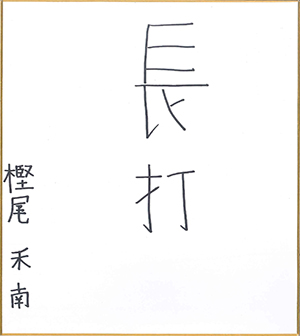 長打
樫尾禾南